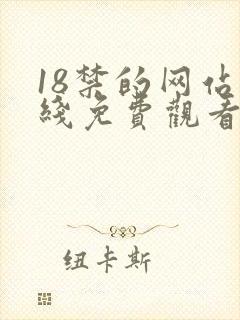 18禁的网佔
綫免費觀看
纽卡斯